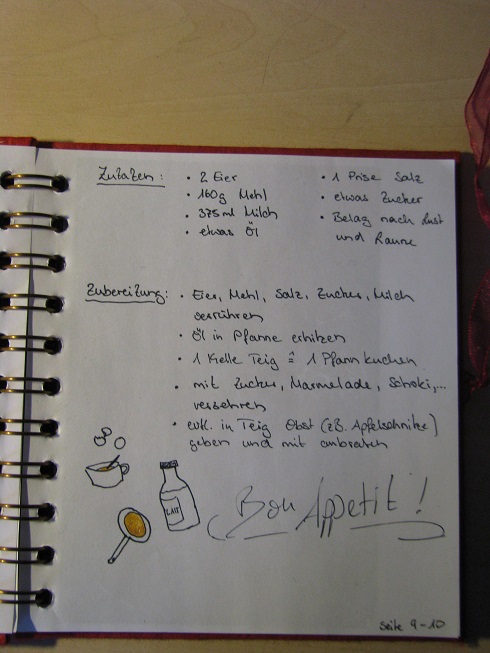 Zutaten:
• 2 Eier
• 160g Mehl
• 375ml Milch
• etwas Öl
• 1 Prise Salz
• etwas Zucker
• Belag nach Lust
und Laune
Zubereitung:
• Eier, Mehl, Salz, Zucker, Milch
verrühren
• Öl in Pfanne erhitzen
• 1 Kelle Teig ≙ 1 Pfannkuchen
• mit Zucker, Marmelade, Schoki,...
verzehren
• evtl. in Teig Obst (z.B. Apfelschnitze)
geben und mit anbraten
LAIT
Bon Appetit!
Seite 9-10